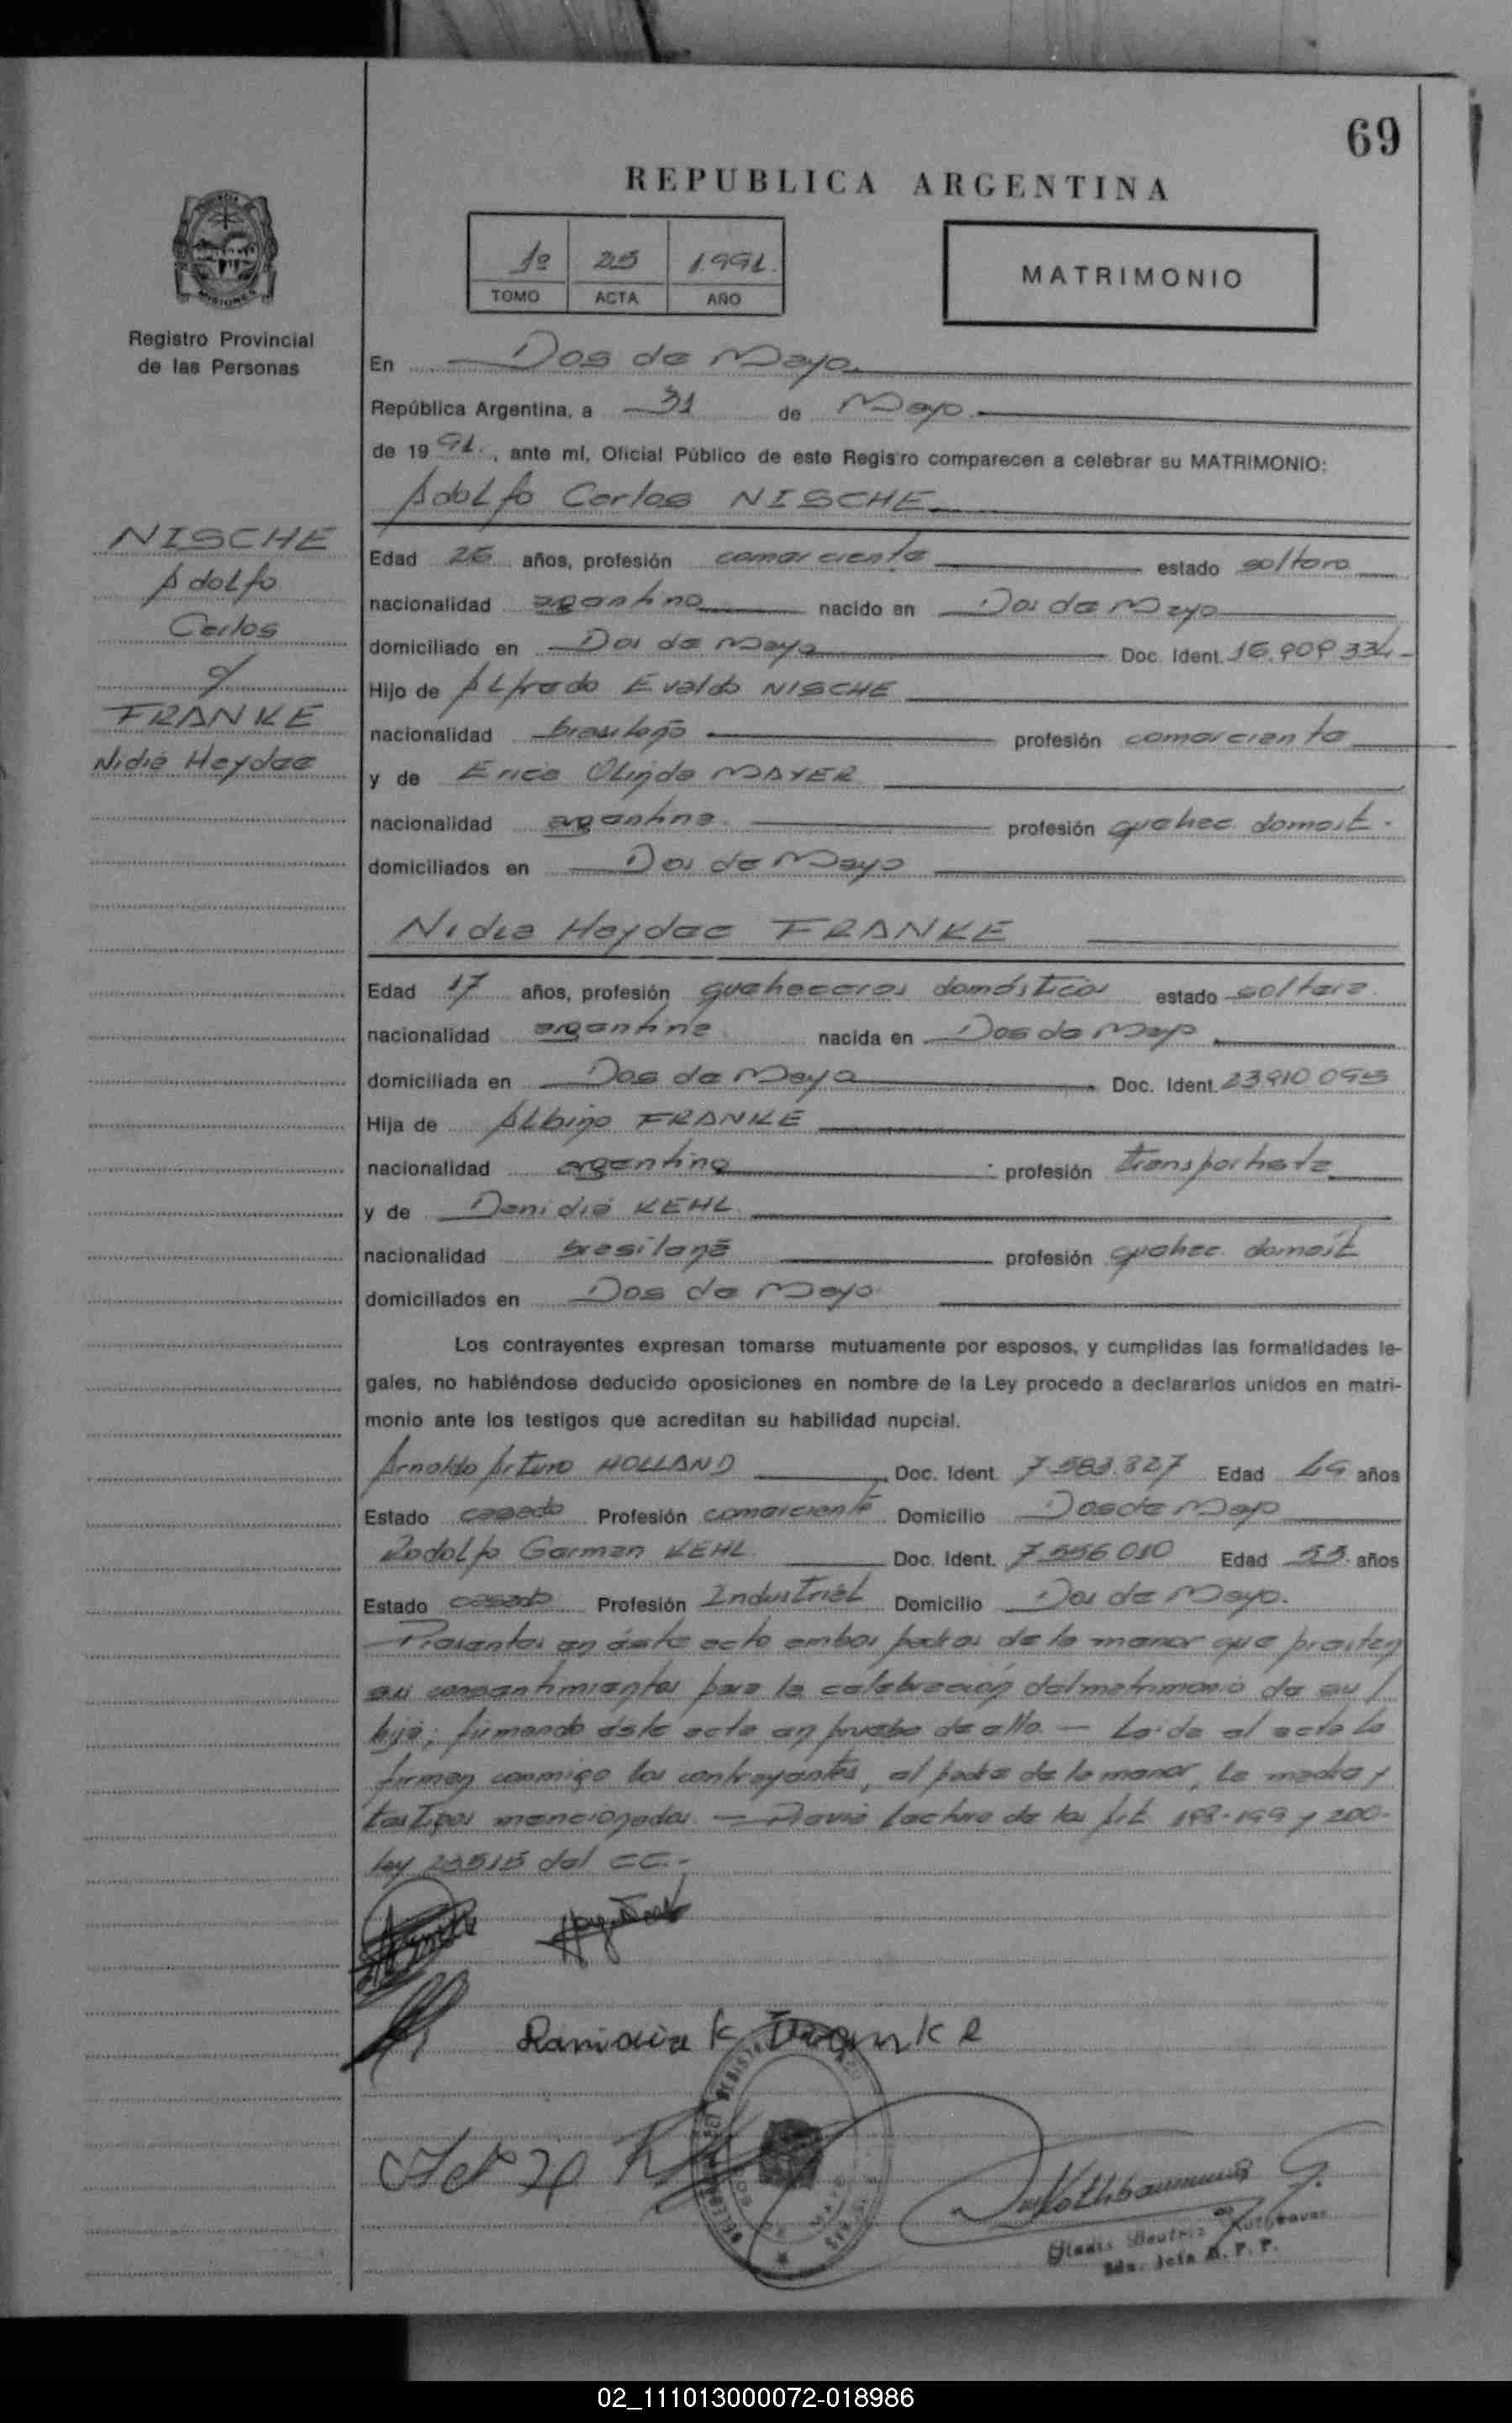 69
REPUBLICA ARGENTINA
1º 25 1.991.
TOMO ACTA AÑO
MATRIMONIO
MISIONES
Registro Provincial
de las Personas
En Dos de Mayo
República Argentina, a 31 de Mayo
de 19 91., ante mí, Oficial Público de este Registro comparecen a celebrar su MATRIMONIO:
Adolfo Carlos NISCHE
NISCHE
Adolfo
Carlos
c/
FRANKE
Nidia Haydee
Edad 26 años, profesión comerciante estado soltero
nacionalidad argentino nacido en Dos de Mayo
domiciliado en Dos de Mayo Doc. Ident. 16.909 334
Hijo de Alfredo Evaldo NISCHE
nacionalidad brasileño profesión comerciante
y de Erica Olinda MAYER
nacionalidad argentina profesión quehac. domést.
domiciliados en Dos de Mayo
Nidia Haydee FRANKE
Edad 17 años, profesión quehaceres domésticos estado soltera
nacionalidad argentina nacida en Dos de Mayo
domiciliada en Dos de Mayo Doc. Ident. 23.910 095
Hija de Albino FRANKE
nacionalidad argentino profesión transportista
y de Danidia KEHL
nacionalidad brasileña profesión quehac. domést
domiciliados en Dos de Mayo
Los contrayentes expresan tomarse mutuamente por esposos, y cumplidas las formalidades le-
gales, no habiéndose deducido oposiciones en nombre de la Ley procedo a declararlos unidos en matri-
monio ante los testigos que acreditan su habilidad nupcial.
Arnoldo Arturo HOLLAND Doc. Ident. 7.583.827 Edad años
Estado casado Profesión comerciante Domicilio Dos de Mayo
Rodolfo German KEHL Doc. Ident. 7.556.010 Edad 53 años
Estado casado Profesión Industrial Domicilio Dos de Mayo.
Presentes en éste acto ambos padres de la menor que prestan
su consentimientos para la celebración del matrimonio de su
hija; firmando éste acto en prueba de ello. — Leída el acta la
firman conmigo los contrayentes, el padre de la menor, la madre y
testigos mencionados. — Previa lectura de los Art. 198-199 y 200-
ley 23515 del CC.-
Danidia K Franke
Gladis Beatriz